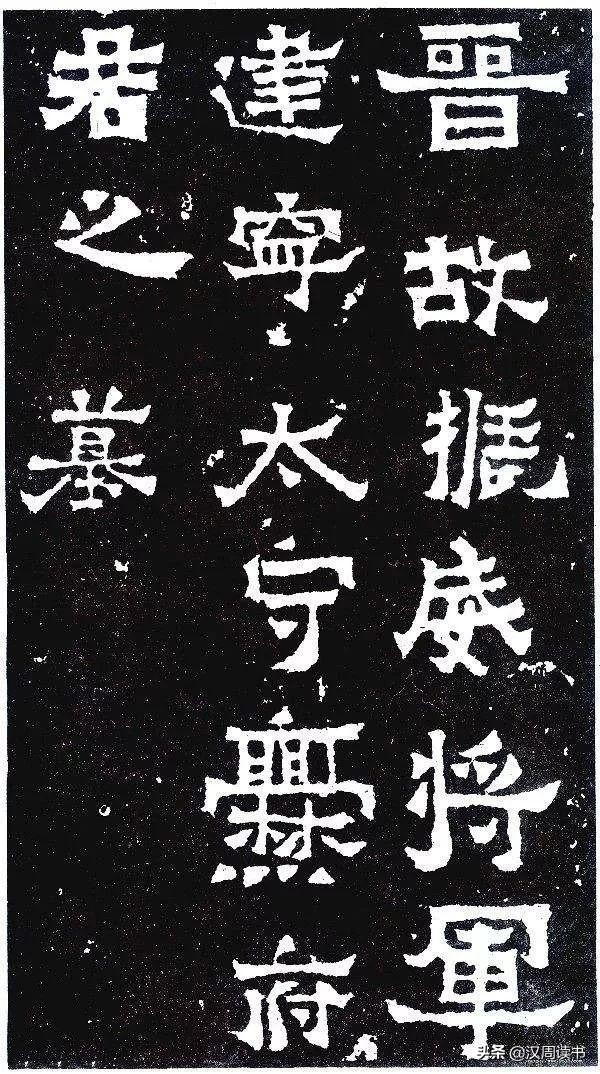 晋故振威将軍
建寧太守爨府
君之墓
头条 @汉周读书